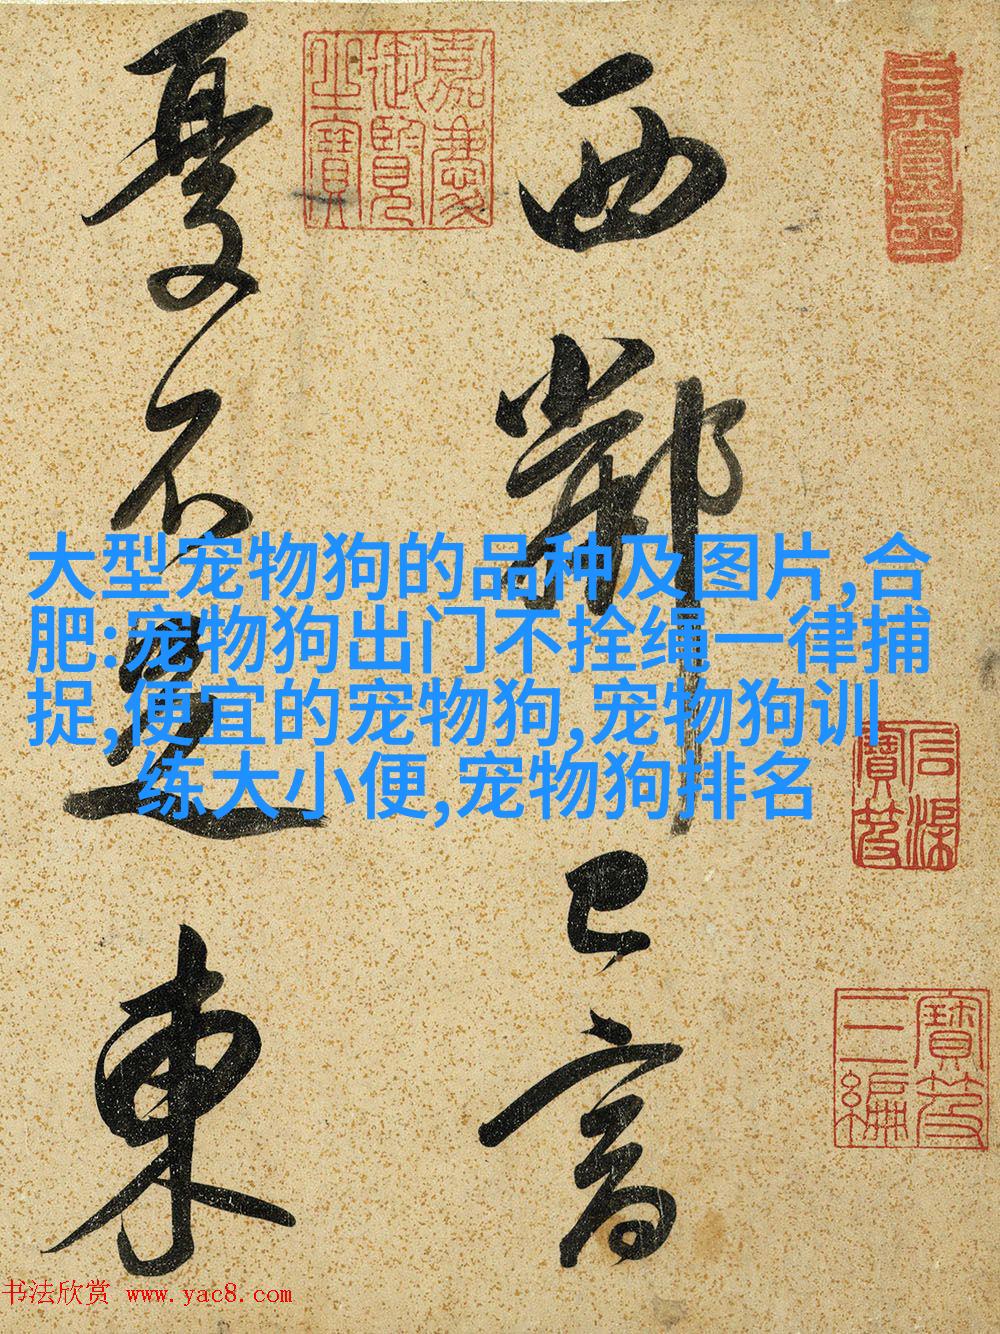 西鄰已富
憂不足東
嘉慶
御覽
之寶
石渠
寶笈
寶笈
三編
大型宠物狗的品种及图片,合
肥:宠物狗出门不拴绳一律捕
捉,便宜的宠物狗,宠物狗训
练大小便,宠物狗排名
书法欣赏 www.yac8.com